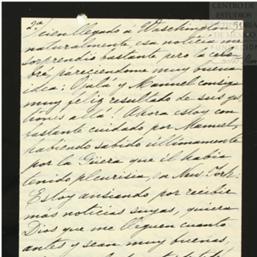 2a/
cien llegado a Washington
naturalmente esa noticia
sorprendió bastante pero la cele-
bré, pareciendome muy buena
idea: Ojalá y Manuel consiga
muy feliz resultado de sus ges-
tiones allá! Ahora estoy con
bastante cuidado por Manuel,
habiendo sabido últimamente
por la Güera que él había
tenido pleurisia, en New York:
Estoy ansiando por recibir
más noticias suyas, quiera
Dios que me lleguen cuanto
antes y sean muy buenas,
CENTRO DE
ESTUDIOS